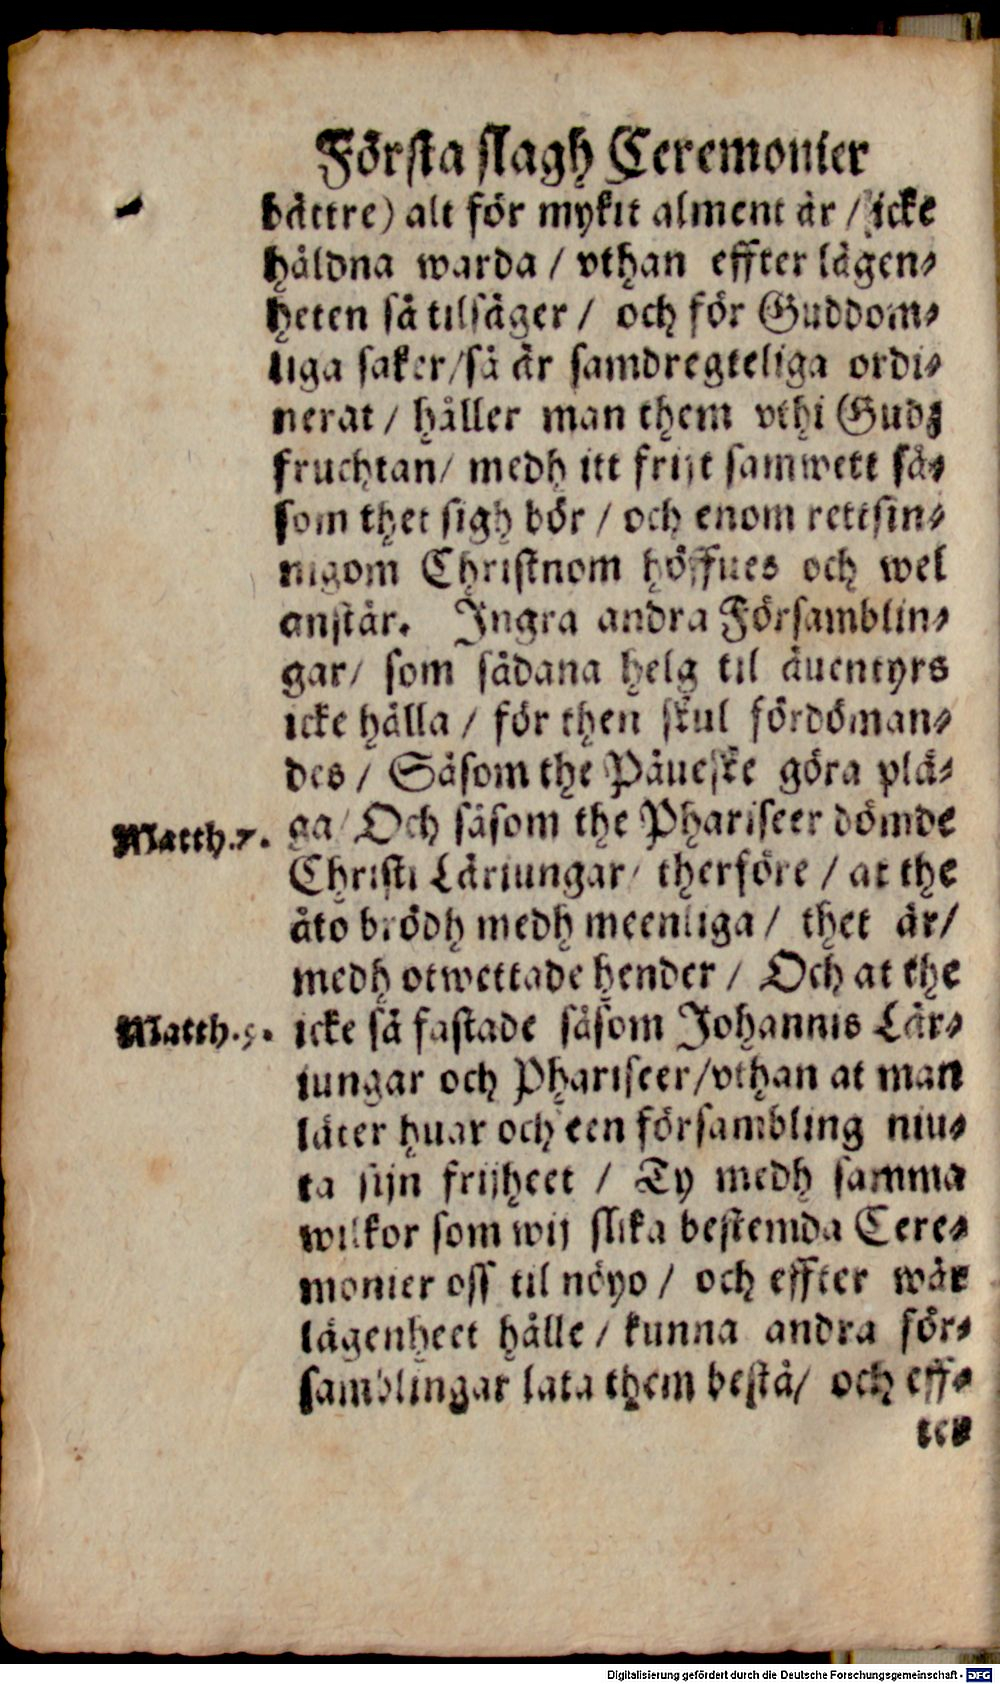 Första slagh Ceremonier
bättre) alt för mykit alment är / icke
håldna warda / vthan effter lägen⸗
heten så tilsäger / och för Guddom⸗
liga saker/så är samdregteliga ordi⸗
nerat / håller man them vthi Gudz
fruchtan/ medh itt frijt samwett så⸗
som thet sigh bör / och enom rettsin⸗
nigom Christnom höffues och wel
anstår. Ingra andra Försambling⸗
gar/ som sådana helg til äuentyrs
icke hålla / för then skul fördöman⸗
des / Såsom the Påueske göra plä⸗
Matth.7. ga/ Och såsom the Phariseer dömde
Christi Läriungar/ therföre / at the
åto brödh medh meenliga / thet är/
medh otwettade hender / Och at the
Matth.9. icke så fastade såsom Johannis Lär⸗
iungar och Phariseer/vthan at man
låter huar och een försambling niu⸗
ta sijn frijheet / Ty medh samma
wilkor som wij slika bestemda Cere⸗
monier oss til nöyo / och effter wår
lägenheet hålle / kunna andra för⸗
samblingar lata them bestå/ och eff⸗
ter
Digitalisierung gefördert durch die Deutsche Forschungsgemeinschaft - DFG